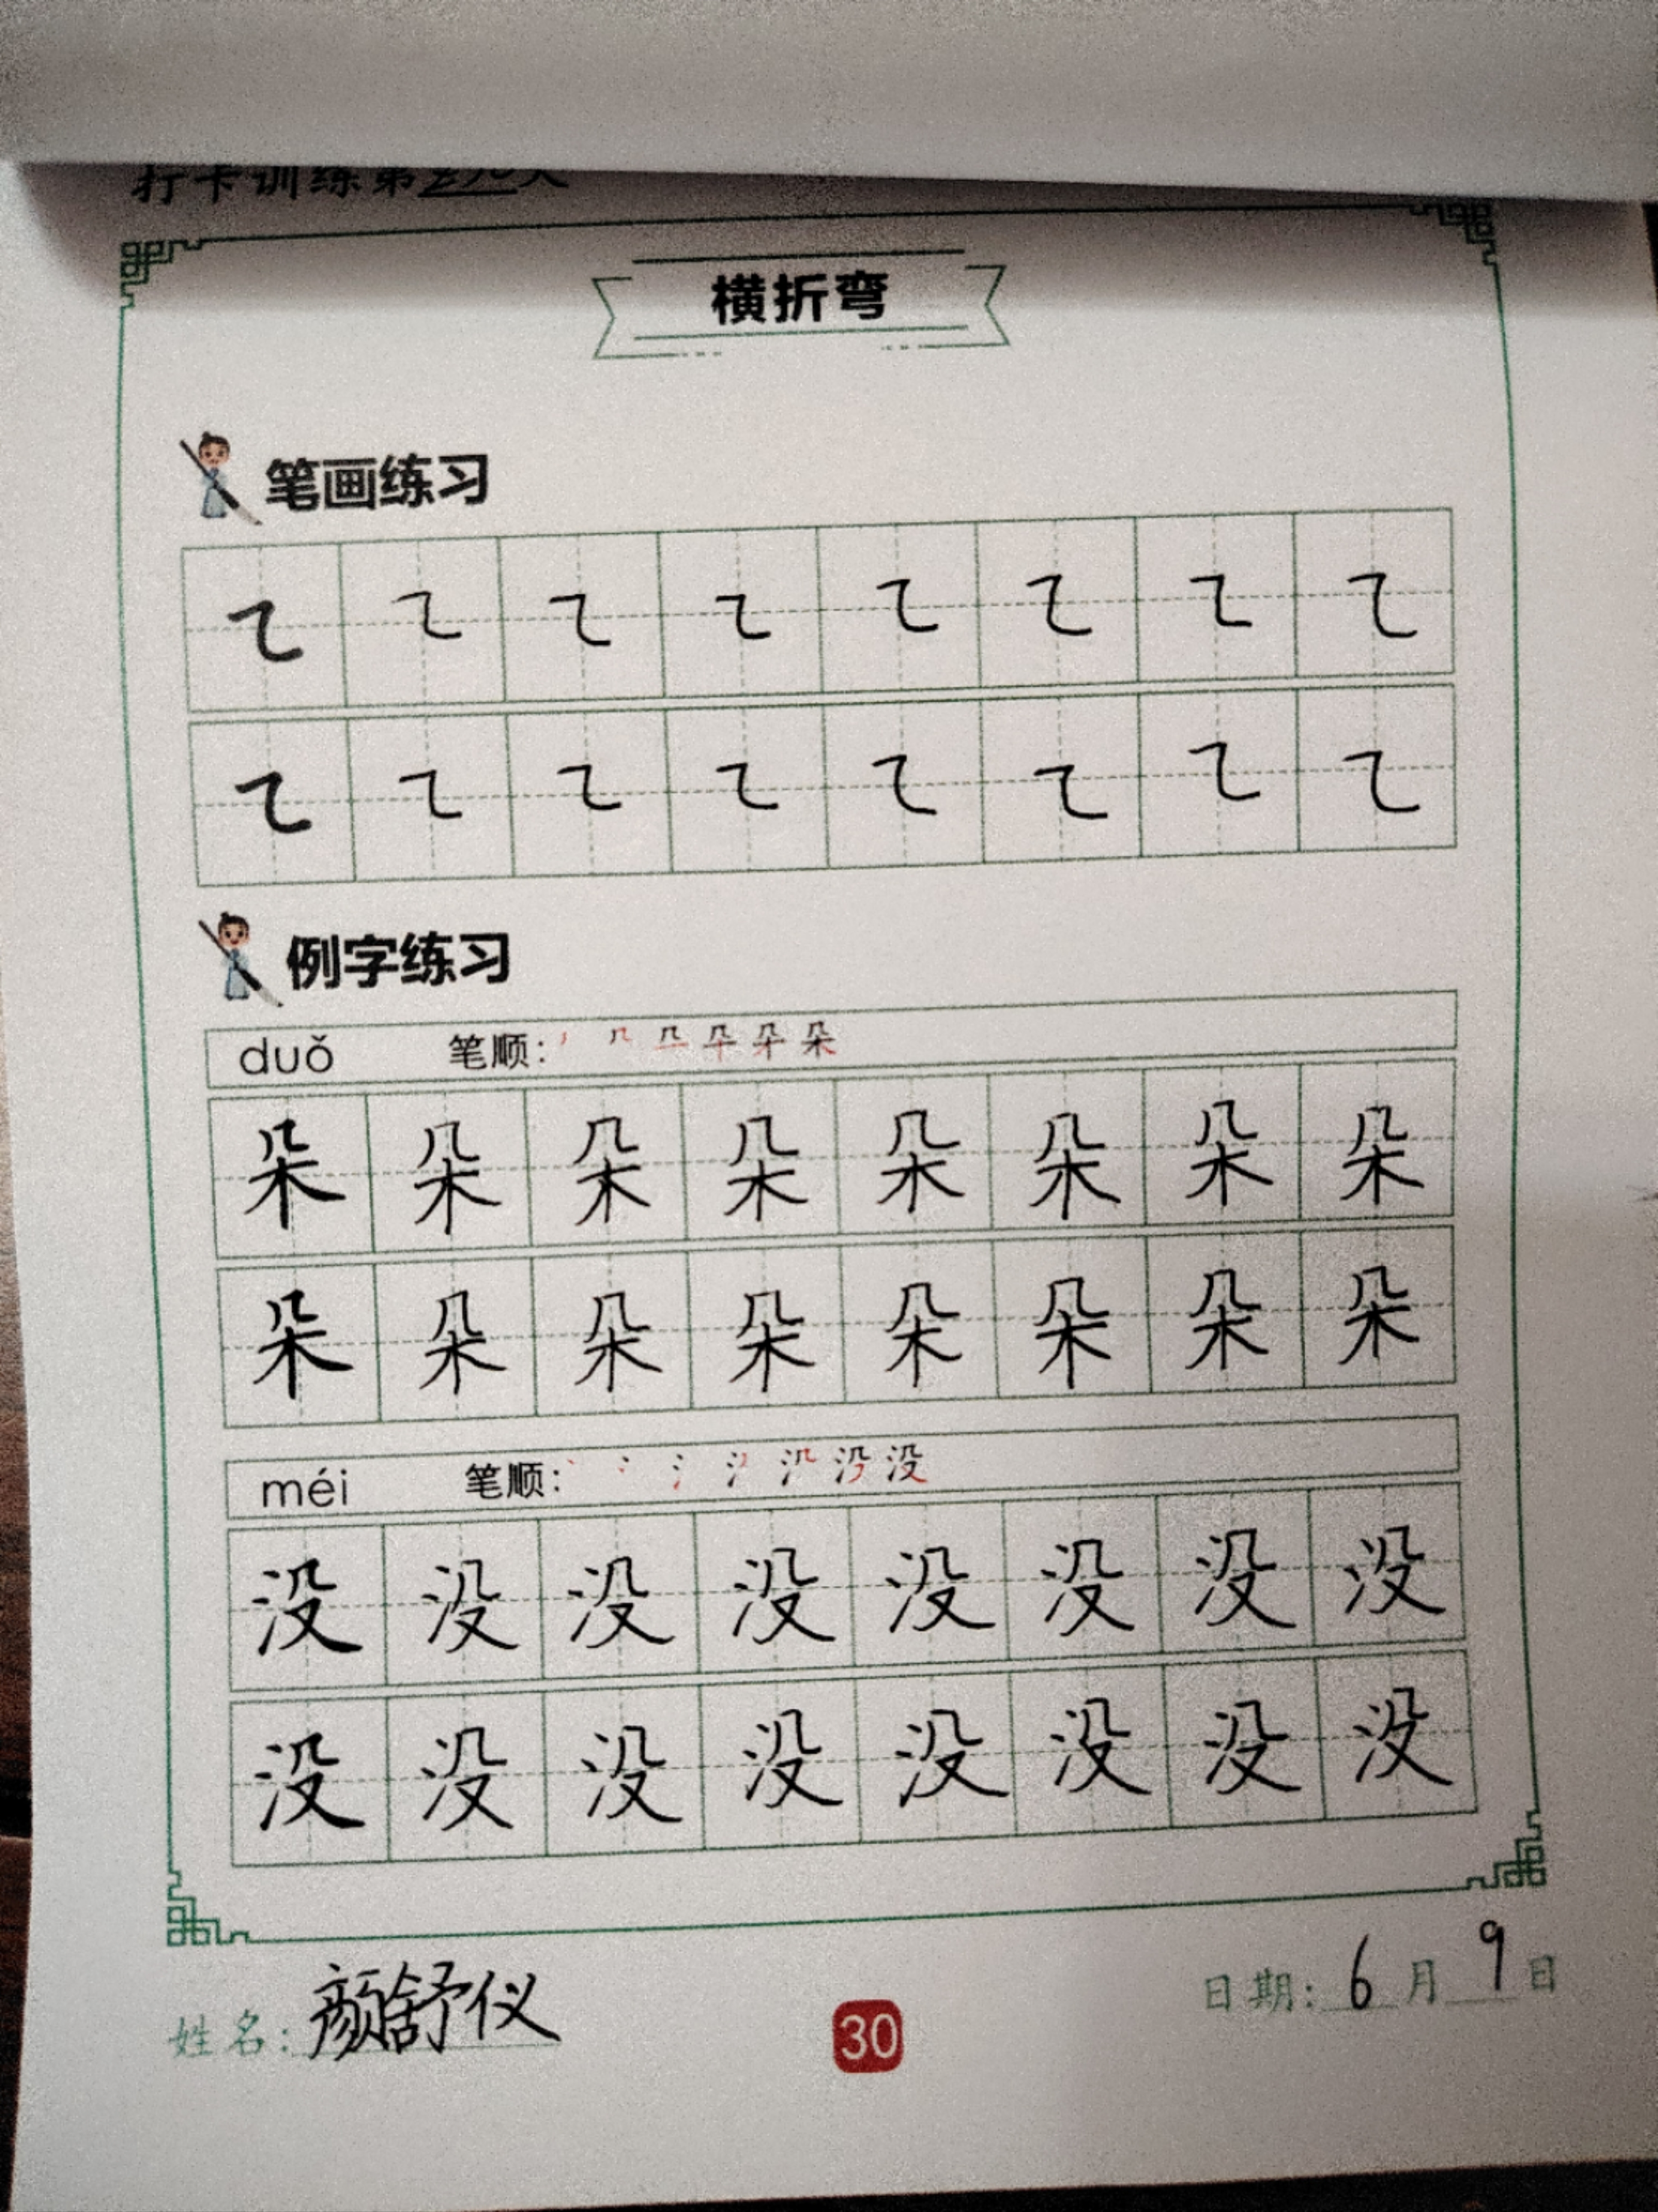 打卡训练第
横折弯
笔画练习
㇍ ㇍ ㇍ ㇍ ㇍ ㇍ ㇍ ㇍
㇍ ㇍ ㇍ ㇍ ㇍ ㇍ ㇍ ㇍
例字练习
duǒ 笔顺:
朵 朵 朵 朵 朵 朵 朵 朵
朵 朵 朵 朵 朵 朵 朵 朵
méi 笔顺:
没 没 没 没 没 没 没 没
没 没 没 没 没 没 没 没
姓名: 颜舒仪 30 日期: 6月9日